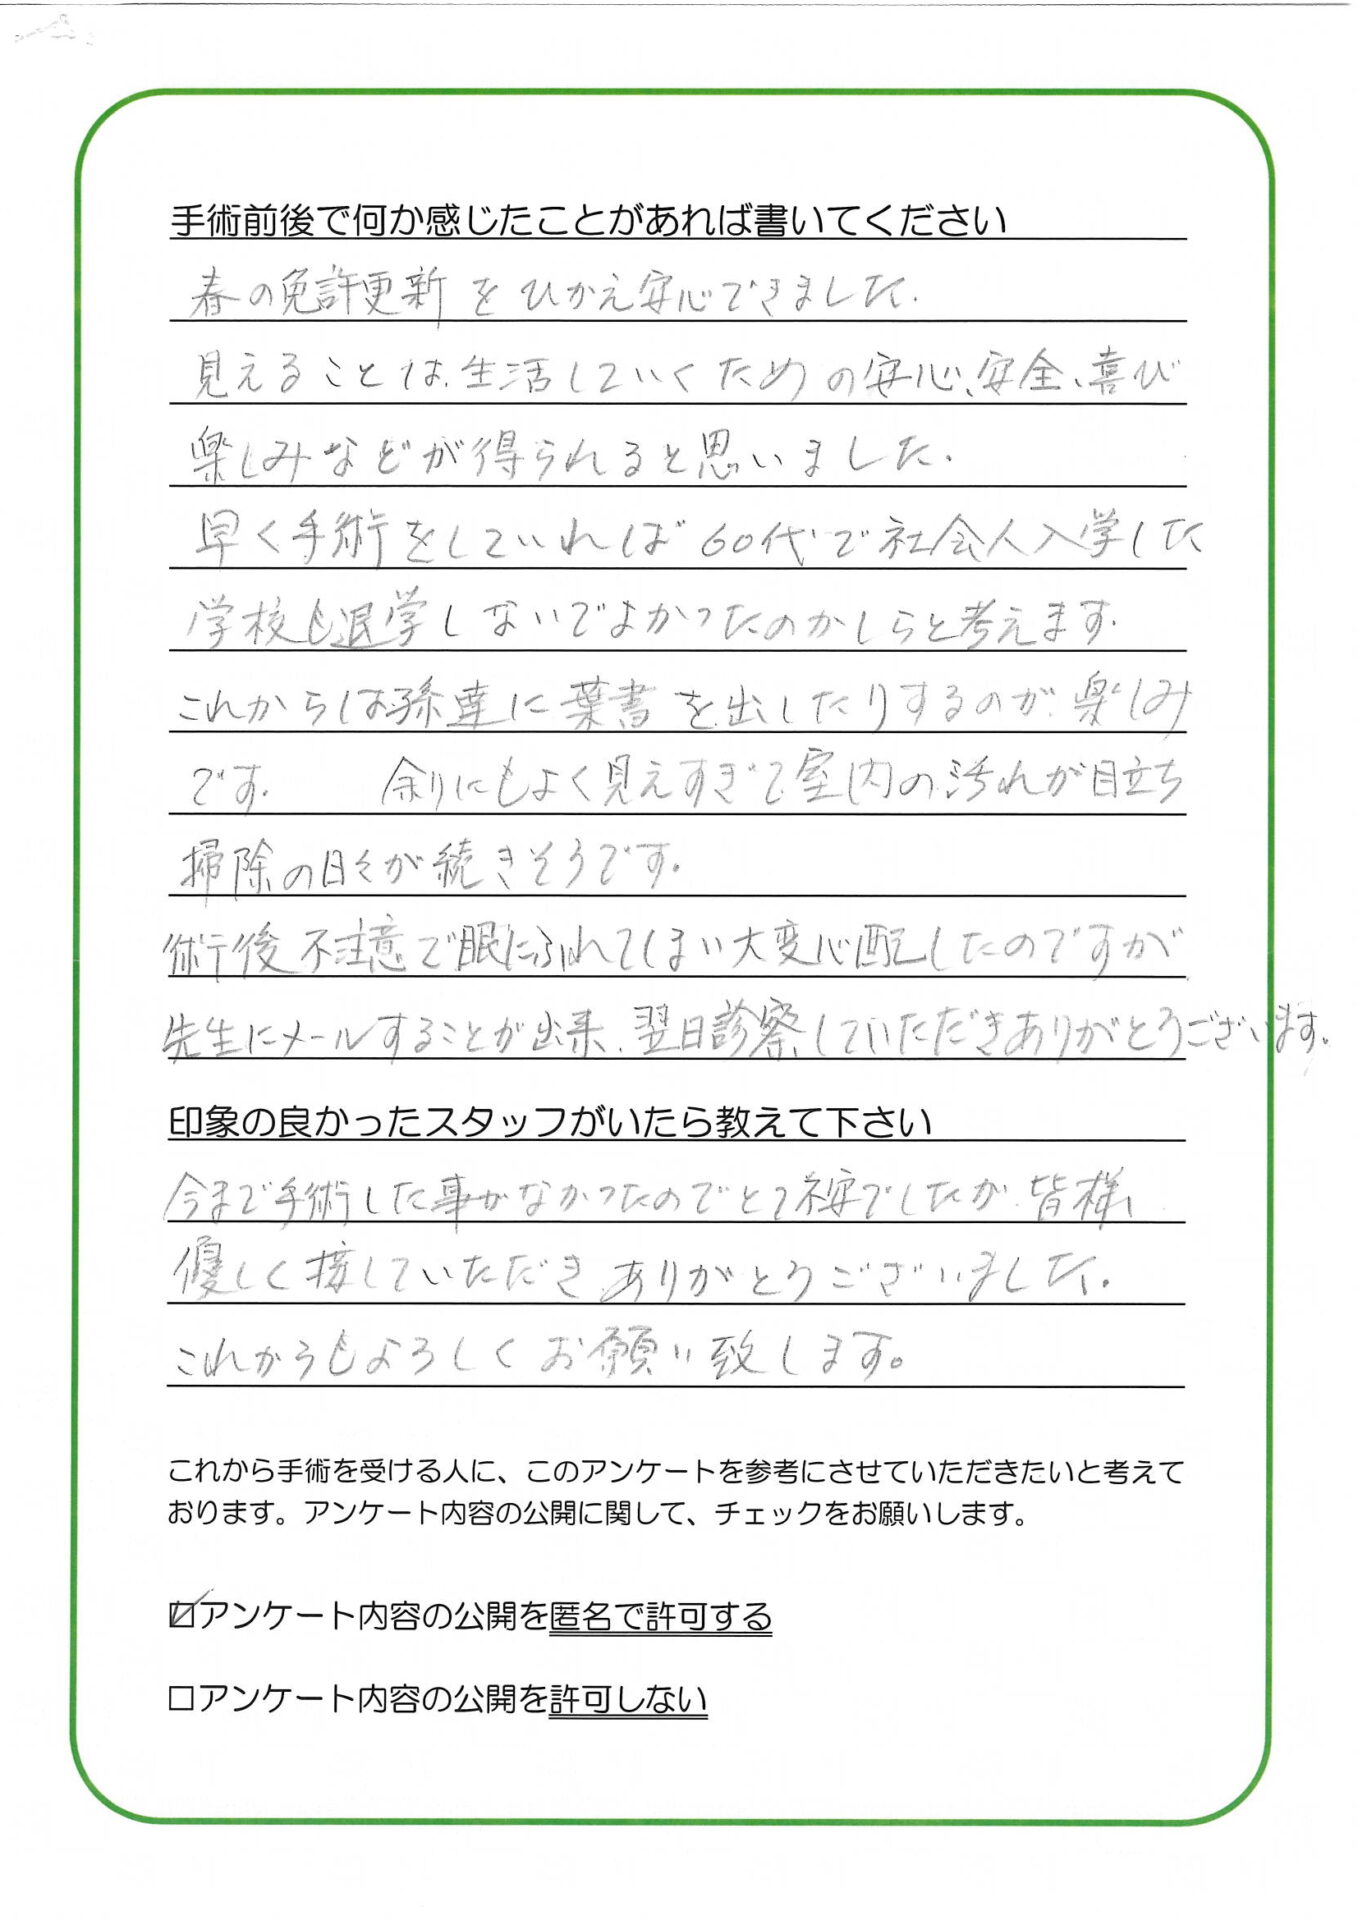 手術前後で何か感じたことがあれば書いてください
春の免許更新をひかえ安心できました.
見えることは、生活していくための安心、安全、喜び
楽しみなどが得られると思いました.
早く手術をしていれば60代で社会人入学した
学校も退学しないでよかったのかしらと考えます.
これからは孫達に葉書を出したりするのが楽しみ
です. 余りにもよく見えすぎて室内の汚れが目立ち
掃除の日々が続きそうです。
術後不注意で眼にふれてしまい大変心配したのですが
先生にメールすることが出来、翌日診察していただきありがとうございます。
印象の良かったスタッフがいたら教えて下さい
今まで手術した事がなかったのでとても不安でしたが 皆様
優しく接していただきありがとうございました.
これからもよろしくお願い致します。
これから手術を受ける人に、このアンケートを参考にさせていただきたいと考えて
おります。アンケート内容の公開に関して、チェックをお願いします。
☑アンケート内容の公開を匿名で許可する
□アンケート内容の公開を許可しない